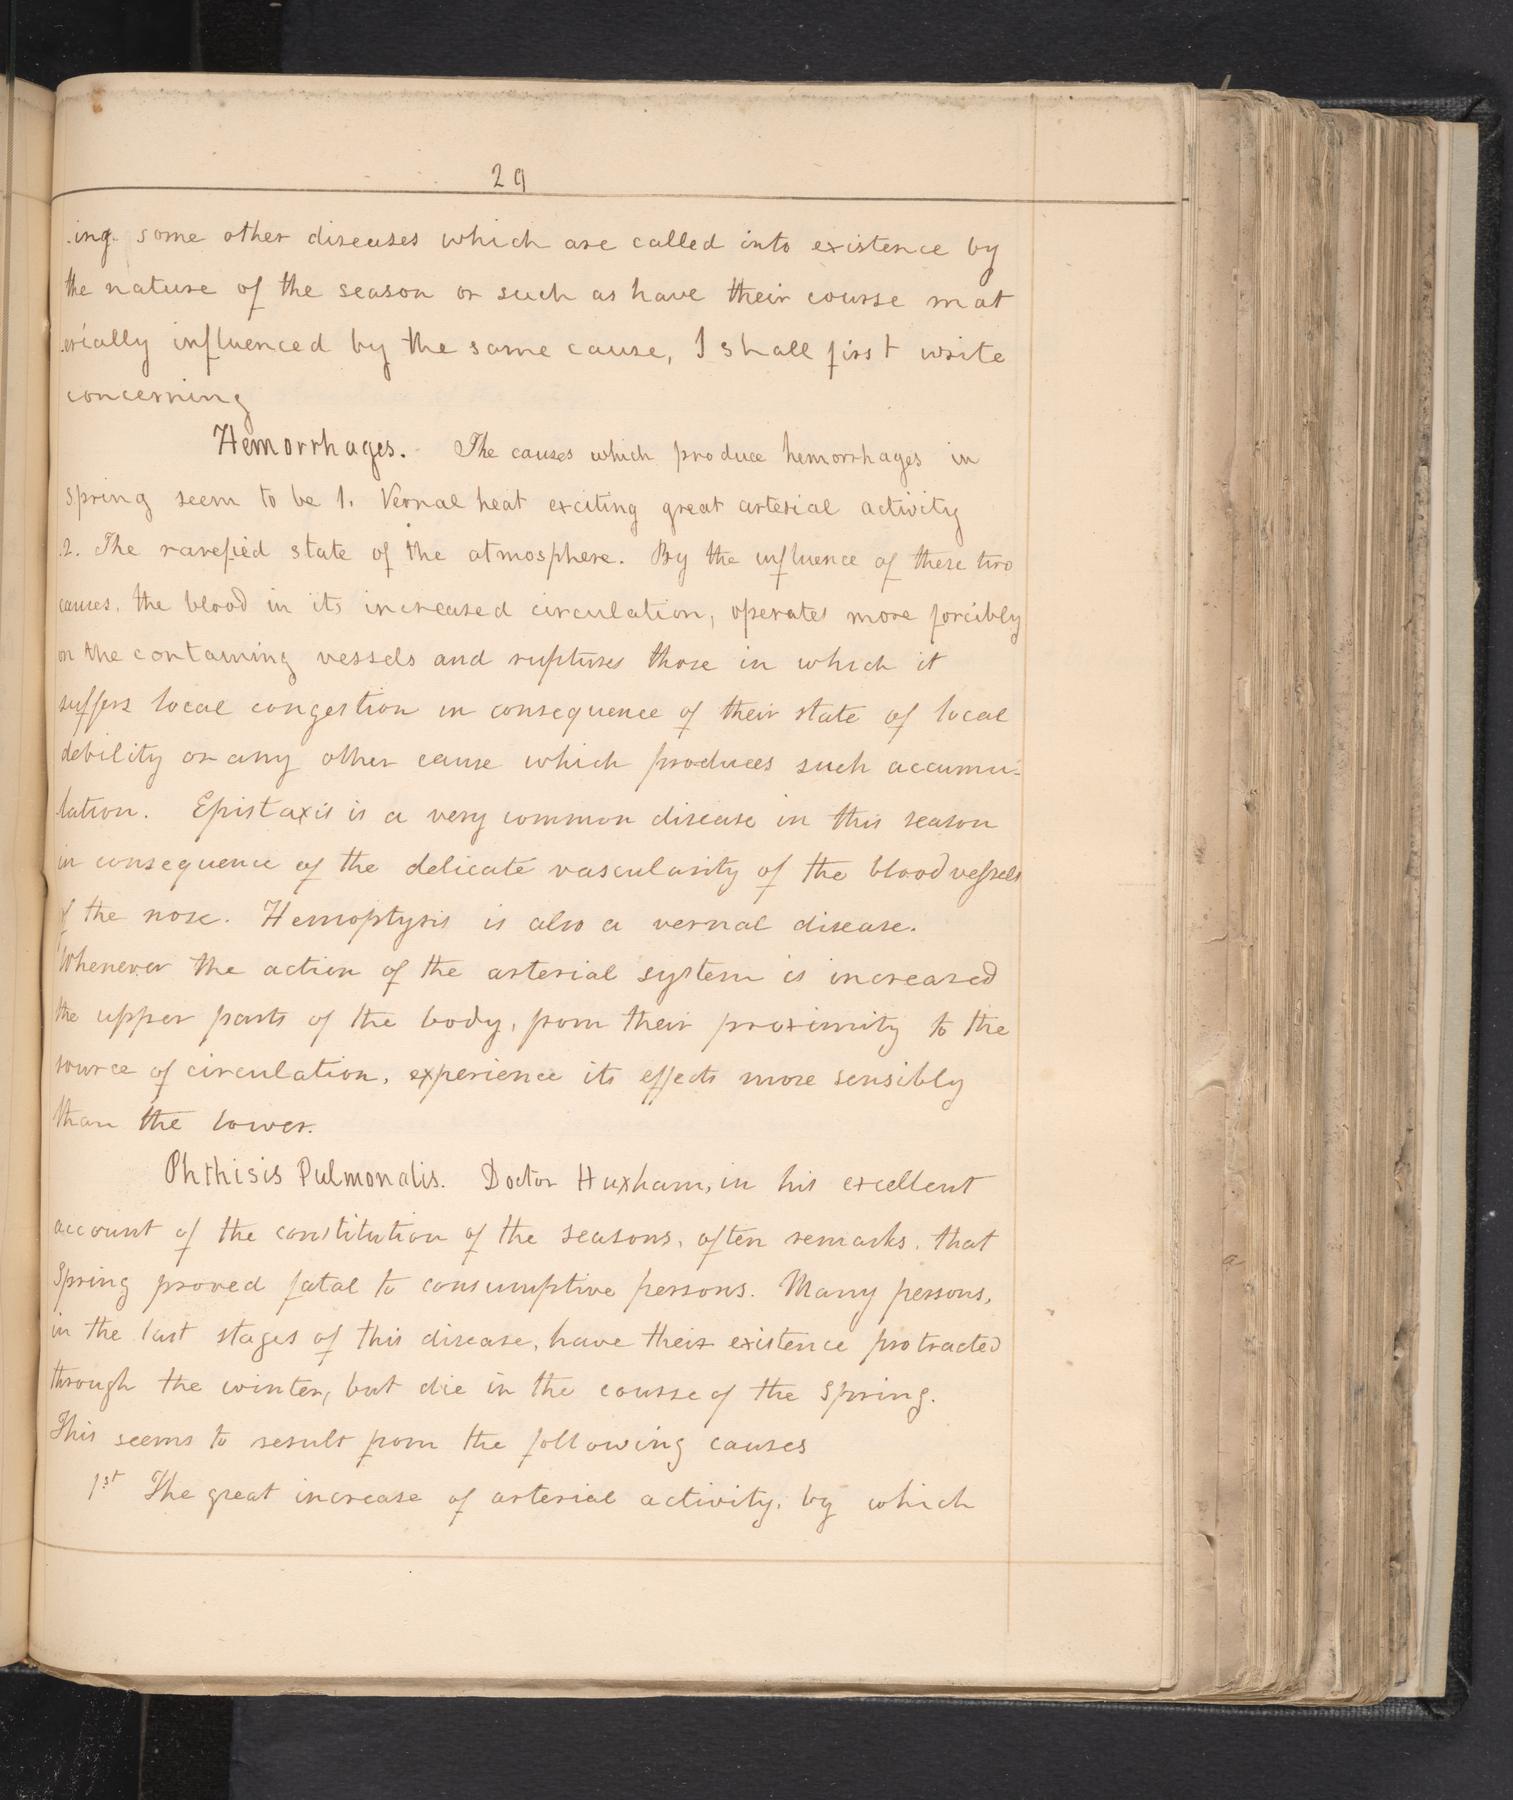 29
.ing. some other diseases which are called into existence by
the nature of the season or such as have their course mat
.erially influenced by the same cause, I shall first write
concerning
Hemorrhages. - The causes which produce hemorrhages in
spring seem to be 1. Vernal heat exciting great arterial activity
.2. The rarefied state of the atmosphere. By the influence of these two
causes, the blood in its increased circulation, operates more forcibly
on the containing vessels and ruptures those in which it
suffers local congestion in consequence of their state of local
debility or any other cause which produces such accumu-
lation. Epistaxis is a very common disease in this season
in consequence of the delicate vascularity of the blood vessels
of the nose. Hemoptysis is also a vernal disease.
Whenever the action of the arterial system is increased
the upper parts of the body, from their proximity to the
source of circulation, experience its effects more sensibly
than the lower.
Phthisis Pulmonalis. Doctor Huxham, in his excellent
account of the constitution of the seasons, often remarks, that
Spring proved fatal to consumptive persons. Many persons,
in the last stages of this disease, have their existence protracted
through the winter, but die in the course of the spring.
This seems to result from the following causes
1st The great increase of arterial activity, by which
a